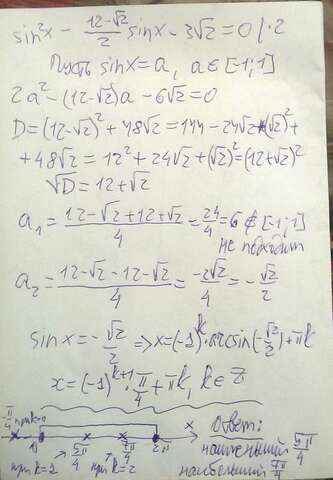 sin²x - (12-√2)/2 sinx - 3√2 = 0 | · 2
Пусть sinx = a, a ∈ [-1; 1]
2a² - (12-√2)a - 6√2 = 0
D = (12-√2)² + 48√2 = 144 - 24√2 + (√2)² +
+ 48√2 = 12² + 24√2 + (√2)² = (12+√2)²
√D = 12 + √2
a₁ = (12-√2+12+√2)/4 = 24/4 = 6 ∉ [-1; 1]
не подходит
a₂ = (12-√2-12-√2)/4 = -2√2/4 = -√2/2
sinx = -√2/2 => x = (-1)^k · arcsin(-√2/2) + πk
x = (-1)^(k+1) · π/4 + πk, k ∈ Z
при k=0
0 5π/4 7π/4 2π x
при k=1 при k=2
Ответ:
наименьший 5π/4
наибольший 7π/4